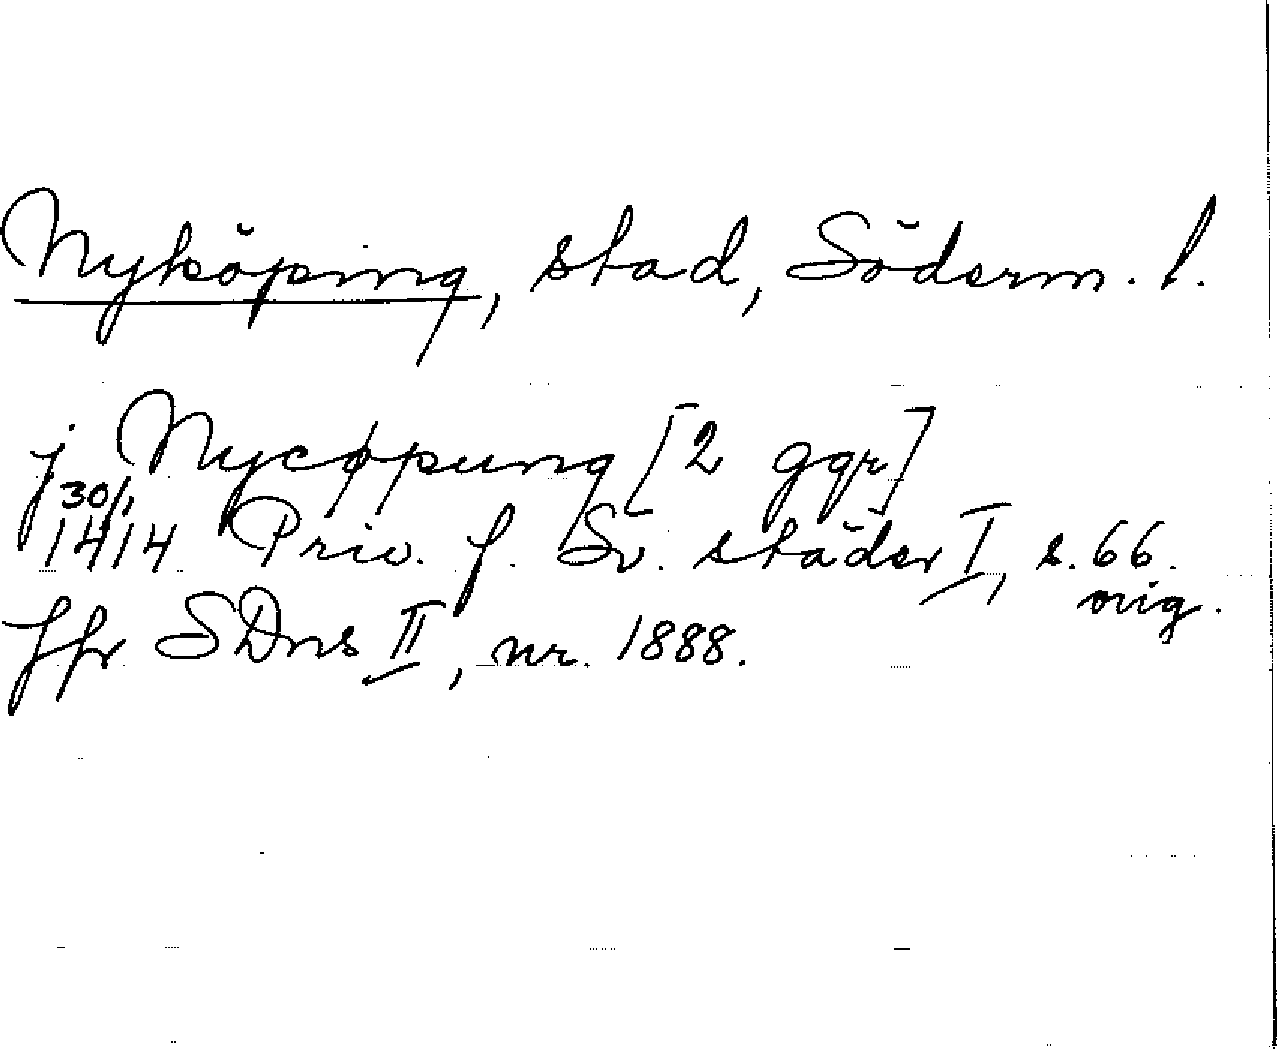 Nyköping, stad, Söderm. l.
j Nycøpung [2 ggr]
30/1
1414 Priv. f. Sv. städer I, s. 66.
orig.
Jfr SDns II, nr. 1888.